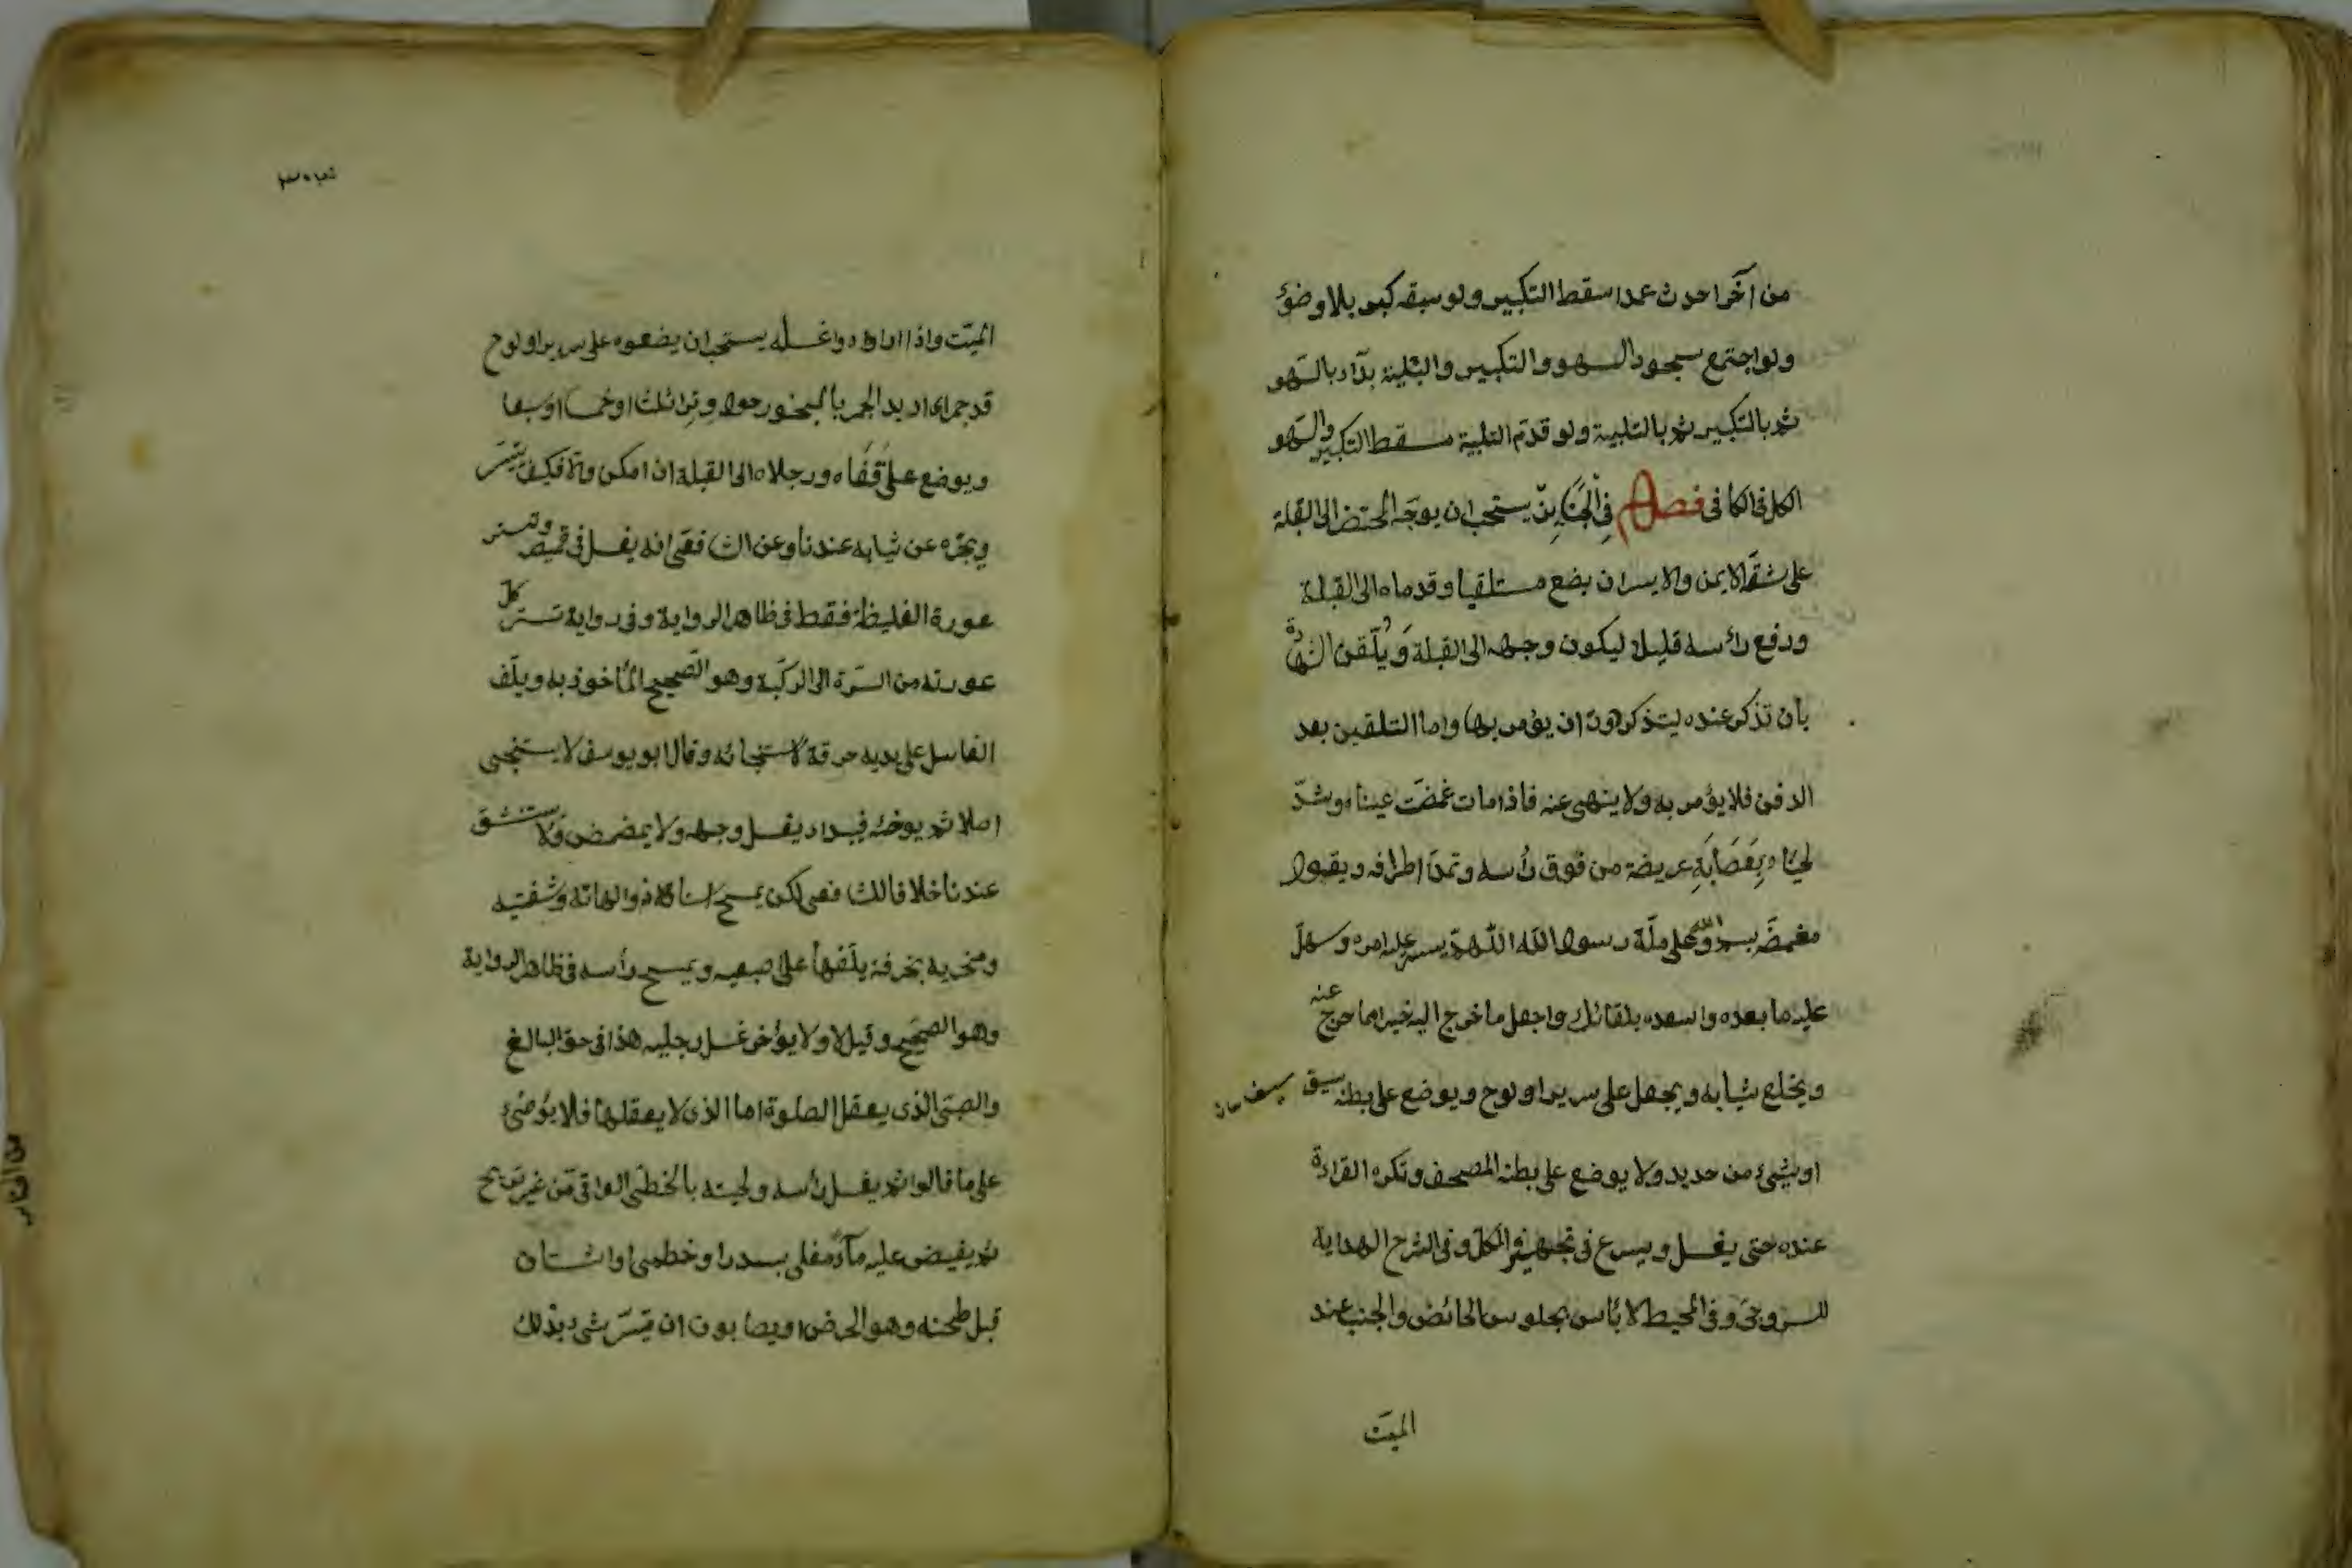 من آخر احدث عمدا سقط التكبير ولو سبقه كبر بلا وضؤ
ولو اجتمع سجود السهو والتكبير والتلبية بدآء بالسهو
ثم بالتكبير ثم بالتلبية ولو قدم التلبية سقط التكبير والسهو
الكل فى الكافى فصل فى الجنايز يستحب ان يوجه المحتضر الى القبلة
على شقه الايمن والايسر ان يضع مستلقيا وقدماه الى القبلة
ورفع رأسه قليلا ليكون وجهه الى القبلة ويلقن الشهادة
بان تذكر عنده ليتذكر دون ان يؤمر بها واما التلقين بعد
الدفن فلا يؤمر به ولا ينهى عنه فاذا مات غمضت عيناه وشد
لحياه بعصابة عريضة من فوق رأسه وتمد اطرافه ويقول
مغمضه بسم الله وعلى ملة رسول الله اللهم يسر عليه امره وسهل
عليه ما بعده واسعده بلقائك واجعل ما خرج اليه خيرا مما خرج عنه
ويخلع ثيابه ويجعل على سرير او لوح ويوضع على بطنه سيق
او شيء من حديد ولا يوضع على بطنه المصحف وتكره القراءة
عنده حتى يغسل ويسرع فى تجهيزه الكل فى الشرح الهداية
للسروجى وفى المحيط لا بأس بجلوس الحائض والجنب عند
الميت
الميت واذا ارادوا غسله يستحب ان يضعوه على سرير او لوح
قد جمر اى ادير المجمر بالبخور حوله وترا ثلثا او خمسا او سبعا
ويوضع على قفاه ورجلاه الى القبلة ان امكن والا فكيف تيسر
ويجرد عن ثيابه عندنا وعن الشافعى انه يغسل فى قميص وتستر
عورة الغليظة فقط فى ظاهر الرواية وفى رواية تستر كل
عورته من السرة الى الركبة وهو الصحيح المأخوذ به ويلف
الغاسل على يديه خرقة لاستنجائه وقال ابو يوسف لا يستنجى
اصلا ثم يوضئه فيبداء بغسل وجهه ولا يمضمض ولا يستنشق
عندنا خلافا للشافعى لكن يمسح اسنانه ولهاته وشفتيه
ومنخريه بخرقة يلفها على اصبعه ويمسح رأسه فى ظاهر الرواية
وهو الصحيح وقيل لا ولا يؤخر غسل رجليه هذا فى حق البالغ
والصبى الذى يعقل الصلوة اما الذى لا يعقلها فلا يوضئ
على ما قالوا ثم يغسل رأسه ولحيته بالخطمى العراقى من غير تسريح
ثم يفيض عليه مآء مغلى بسدر او خطمى او اشنان
قبل طحنه وهو الحرض او بصابون ان تيسر شىء بذلك